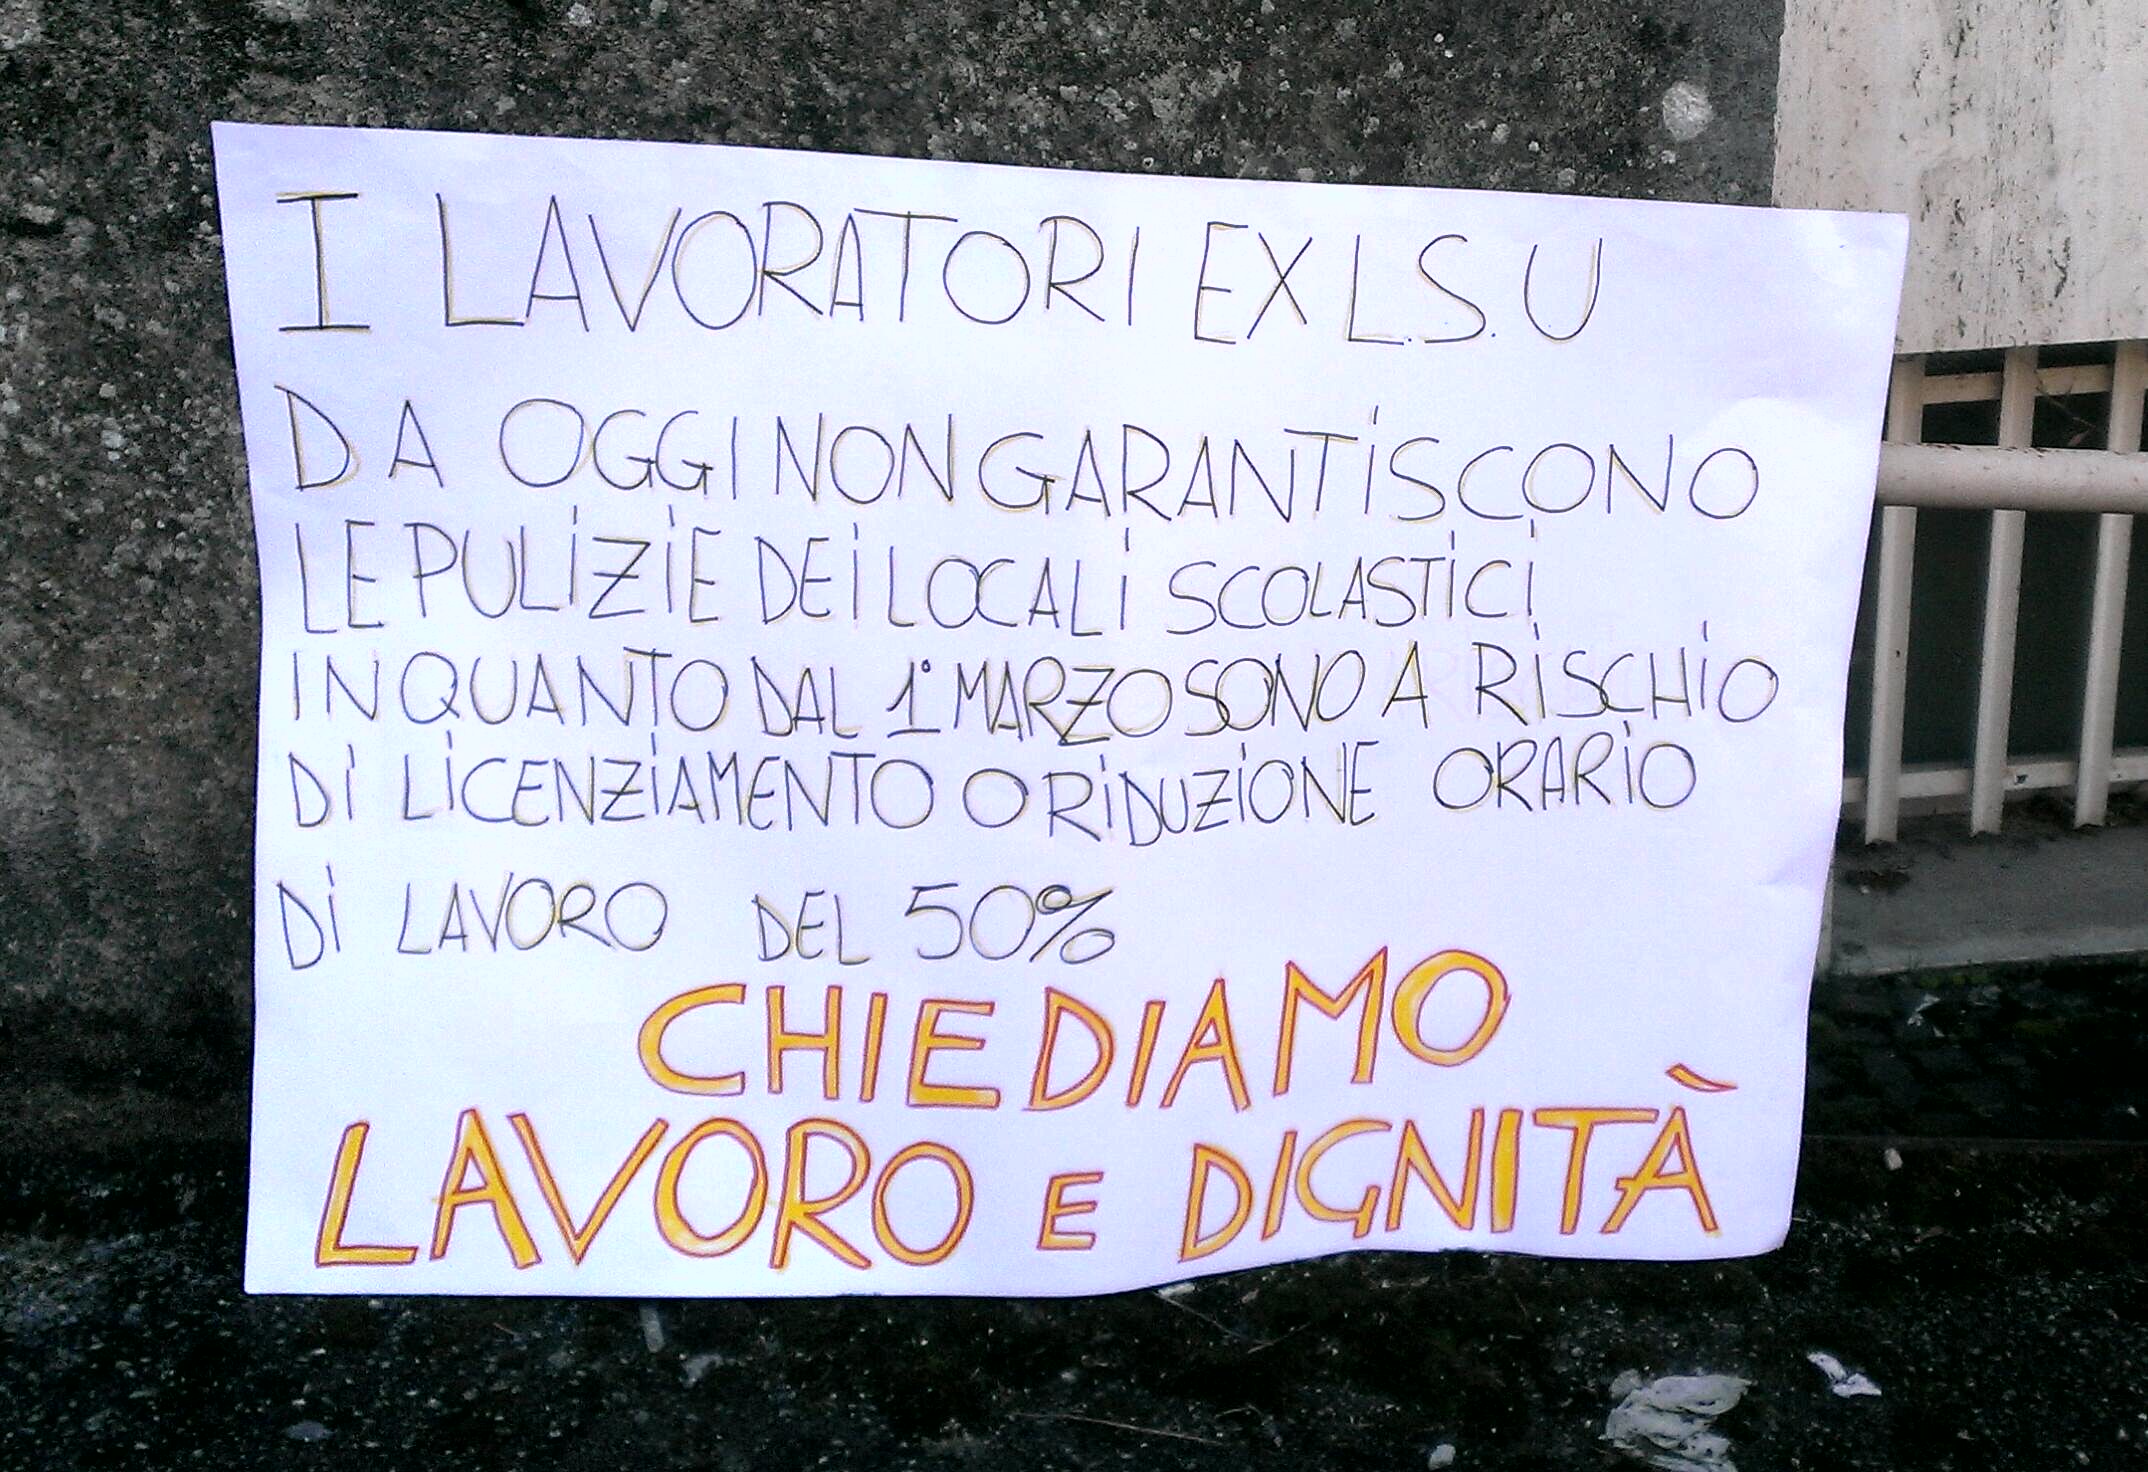 I LAVORATORI EX L.S.U
DA OGGI NON GARANTISCONO
LE PULIZIE DEI LOCALI SCOLASTICI
IN QUANTO DAL 1° MARZO SONO A RISCHIO
DI LICENZIAMENTO O RIDUZIONE ORARIO
DI LAVORO DEL 50%
CHIEDIAMO
LAVORO E DIGNITÀ